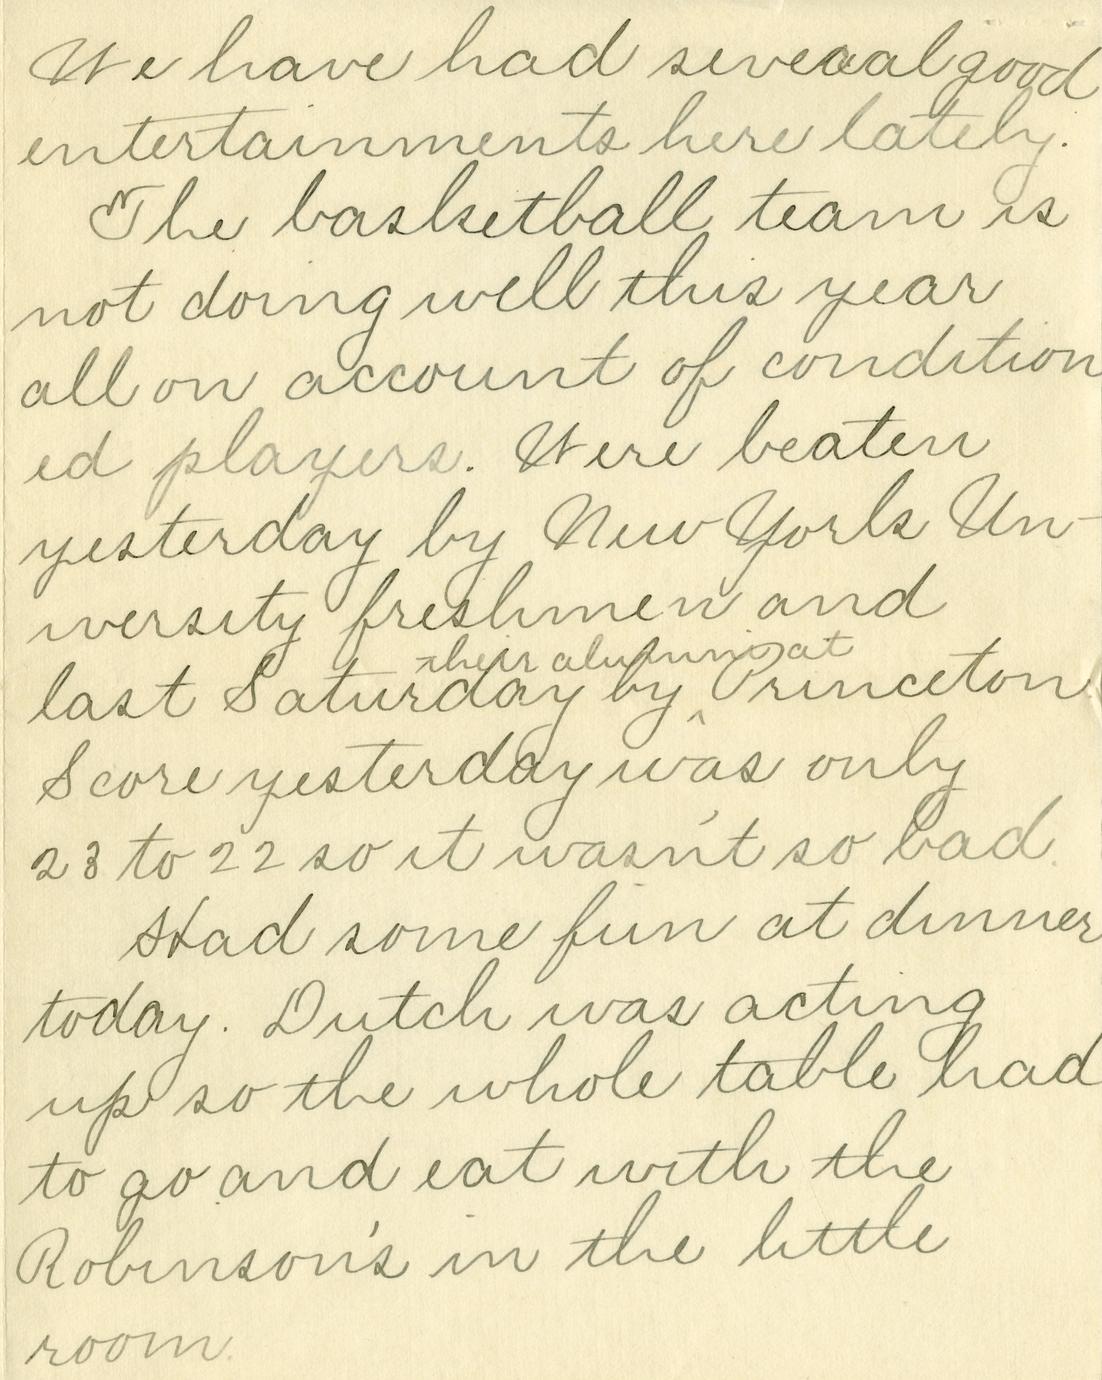 We have had seveaal good
entertainments here lately.
The basketball team is
not doing well this year
all on account of condition
ed players. Were beaten
yesterday by New York Un-
iversity freshmen and
their alumni at
last Saturday by ^ Princeton.
Score yesterday was only
23 to 22 so it wasn't so bad.
Had some fun at dinner
today. Dutch was acting
up so the whole table had
to go and eat with the
Robinson's in the little
room.